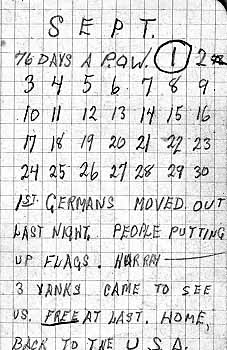 SEPT.
76 DAYS A P.O.W. 1 2
3 4 5 6 7 8 9
10 11 12 13 14 15 16
17 18 19 20 21 22 23
24 25 26 27 28 29 30
1ST. GERMANS MOVED OUT
LAST NIGHT. PEOPLE PUTTING
UP FLAGS. HURRAY
3 YANKS CAME TO SEE
US. FREE AT LAST. HOME,
BACK TO THE U.S.A.